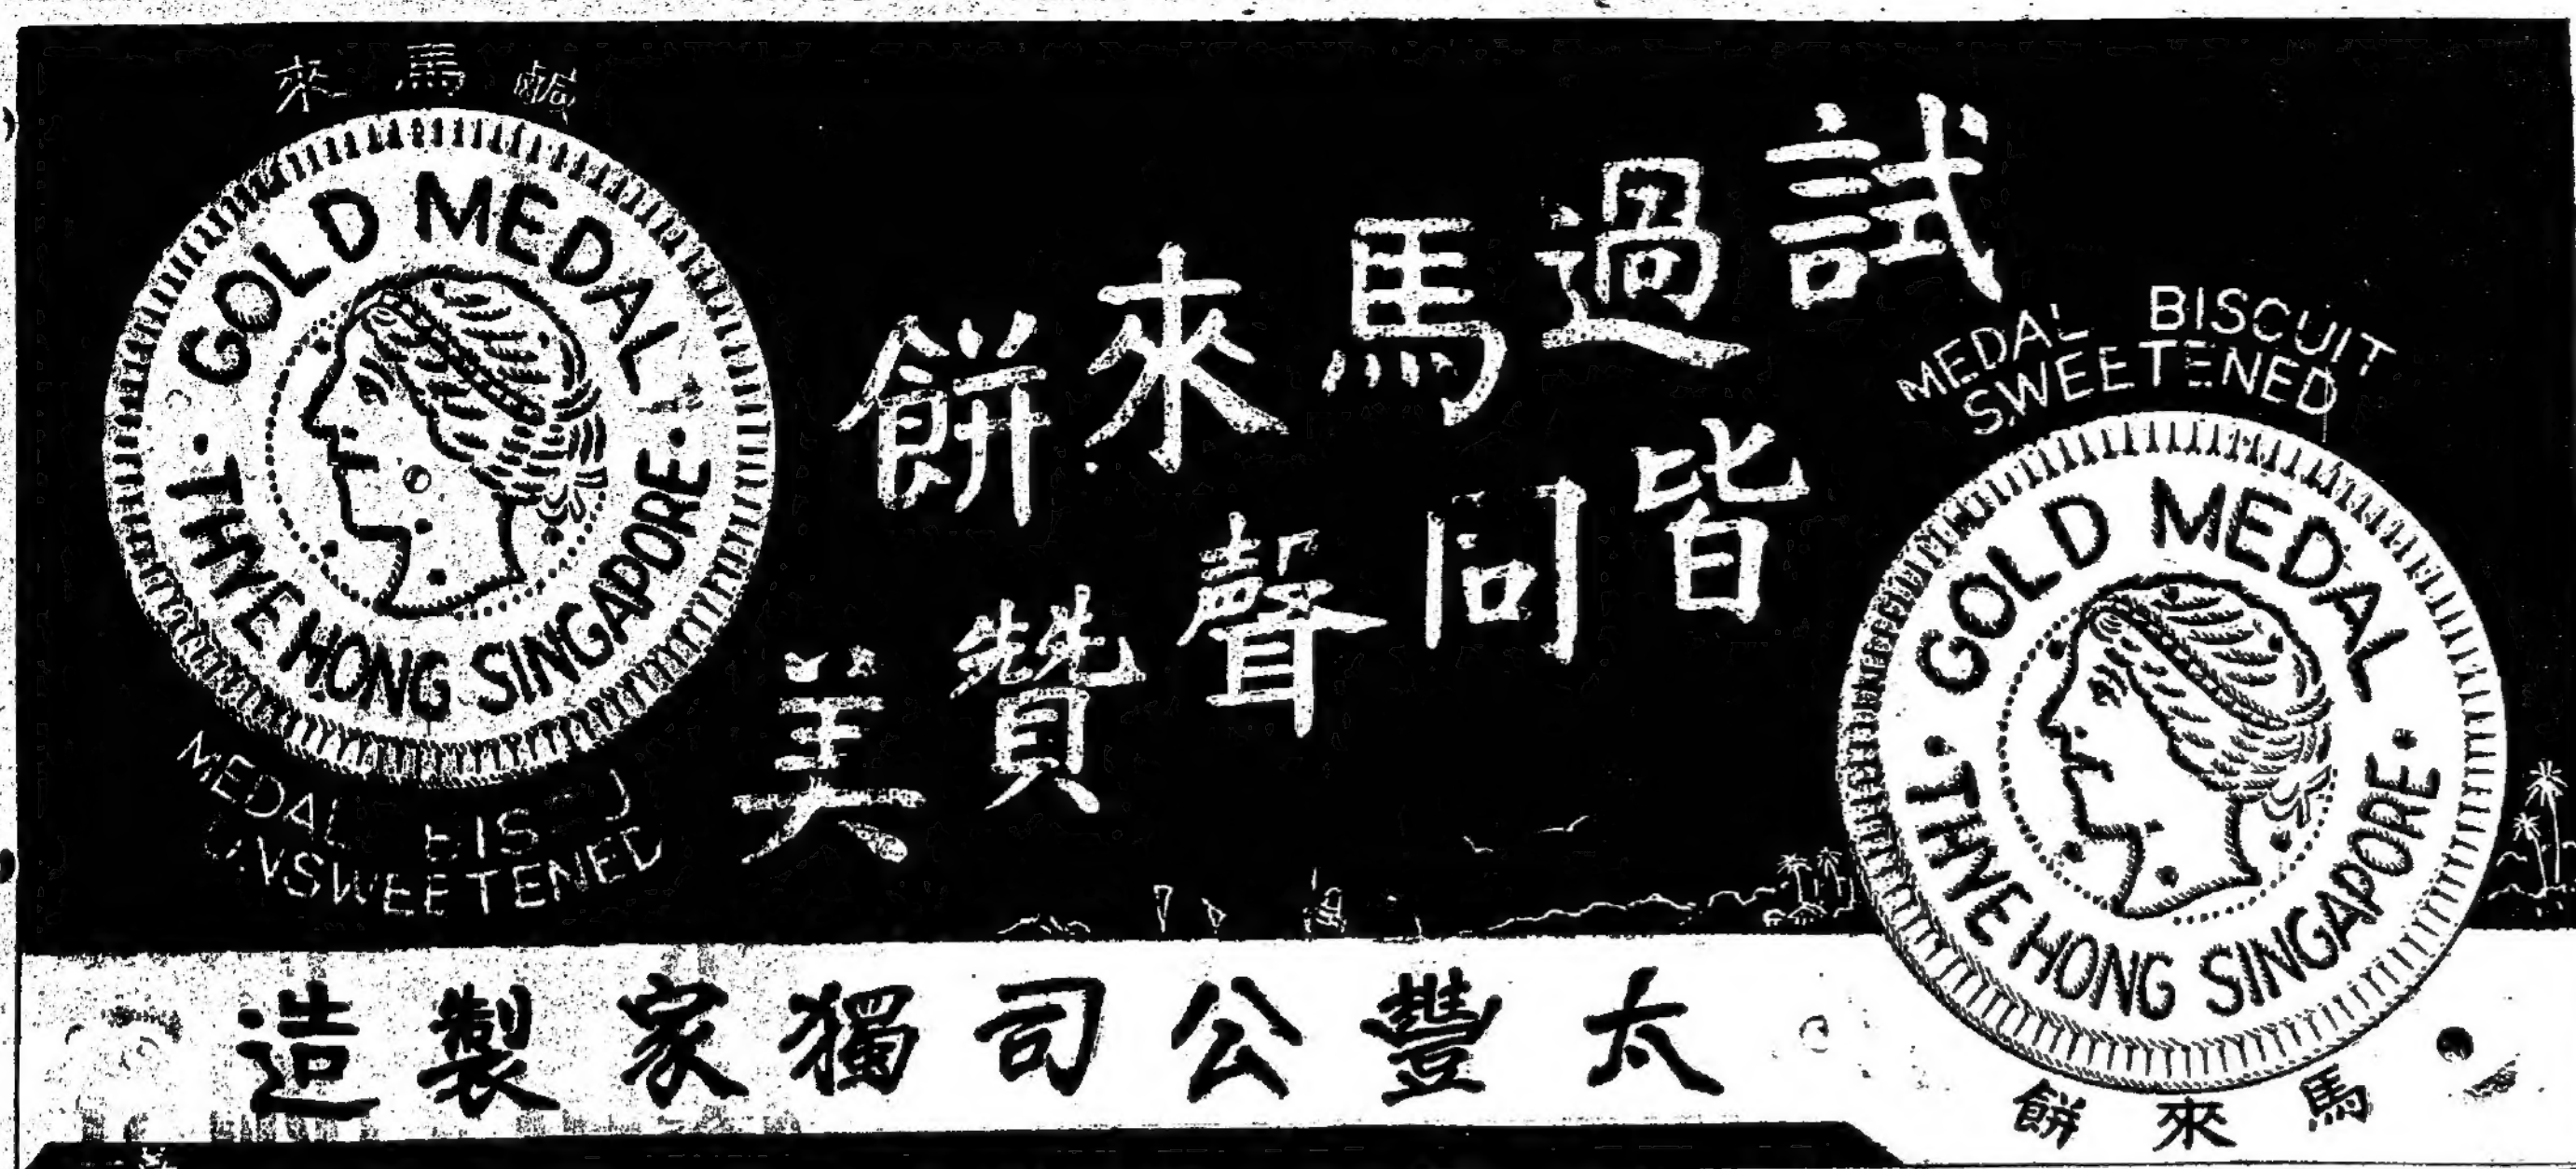 鹹馬來
GOLD MEDAL
THYE HONG SINGAPORE
MEDAL
UNSWEETENED
試過馬來餅
皆同聲贊美
MEDAL BISCUIT
SWEETENED
GOLD MEDAL
THYE HONG SINGAPORE
馬來餅
太豐公司獨家製造